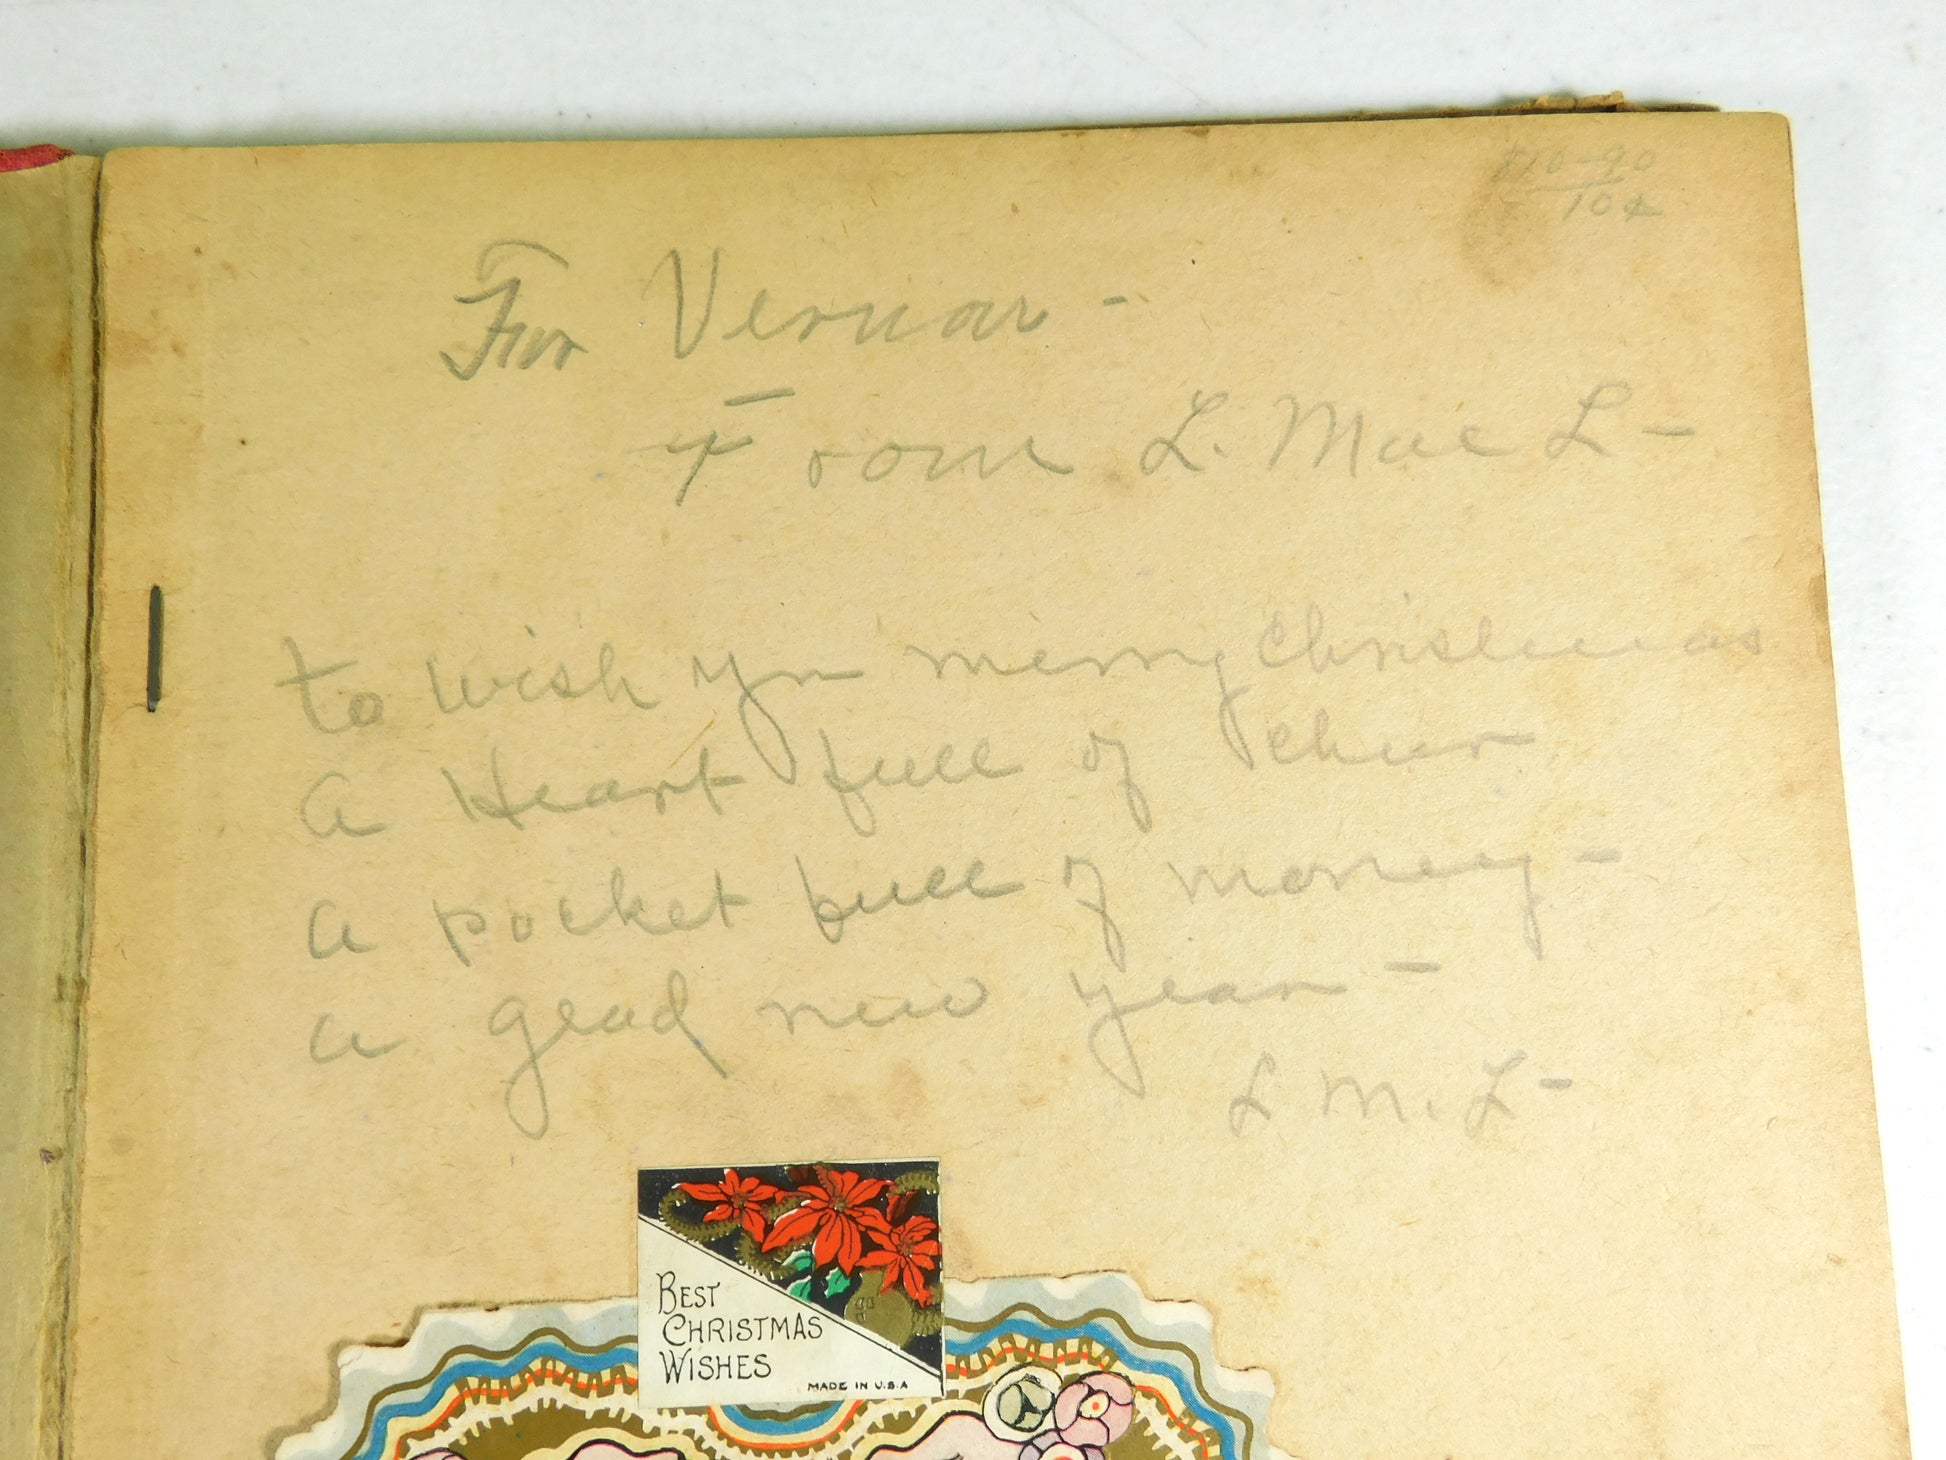 $10-90
10¢
For Vernon -
From L. Mae L -
to wish you merry Christmas
A Heart full of cheer
a pocket full of money -
a glad new year -
L M. L -
BEST
CHRISTMAS
WISHES
MADE IN U.S.A